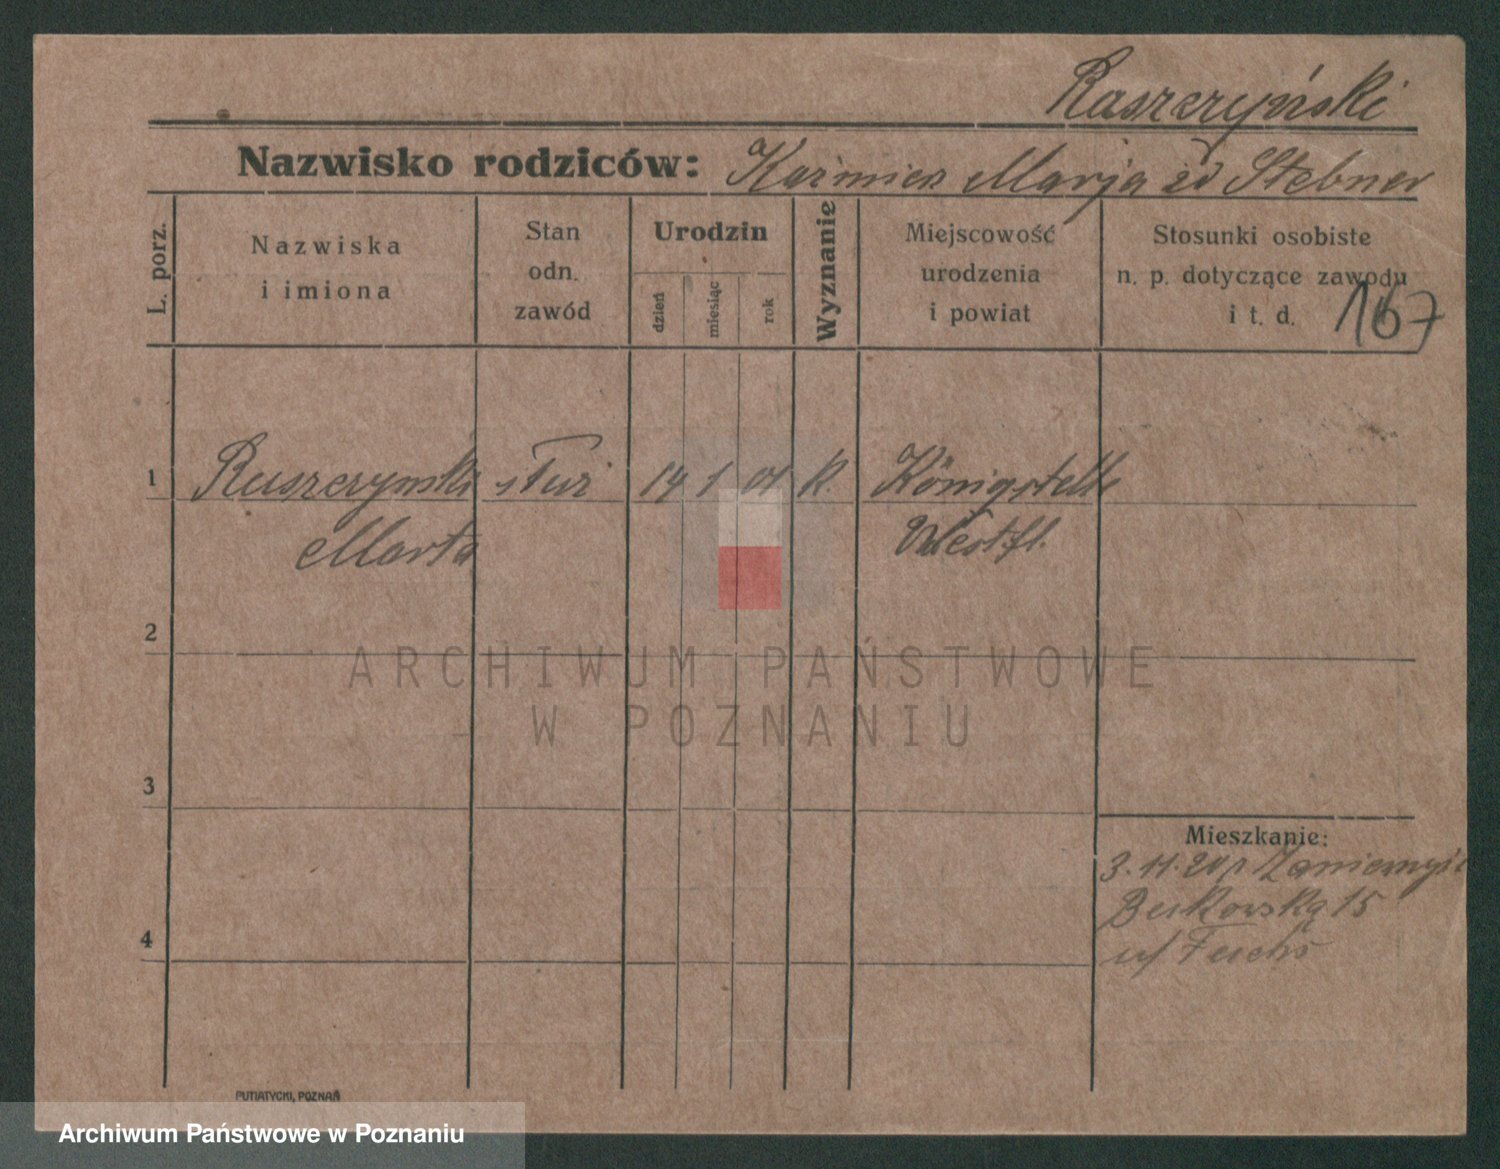 Raszczyński
Nazwisko rodziców: Kaźmierz Marja zd Stebner
L. porz.
Nazwiska
i imiona
Stan
odn.
zawód
Urodzin
dzień
miesiąc
rok
Wyznanie
Miejscowość
urodzenia
i powiat
Stosunki osobiste
n. p. dotyczące zawodu
i t. d.
167
1 Raszczynski 14 1 01 K.
Marta Westfl.
2
3
4
Mieszkanie:
3.11.20
15
Fuchs
ARCHIWUM PAŃSTWOWE
W POZNANIU
PUTIATYCKI, POZNAŃ
Archiwum Państwowe w Poznaniu